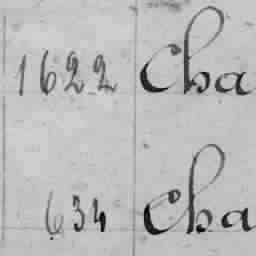 1622 Cha
634 Cha